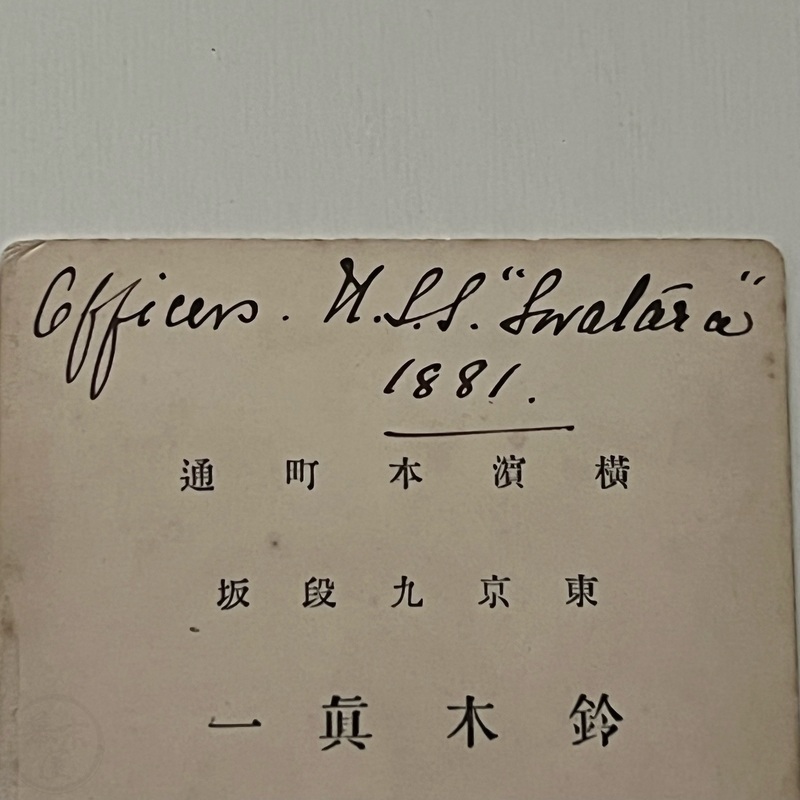 Officers. U.S.S. "Swatara"
1881.
橫濱本町通
東京九段坂
鈴木眞一